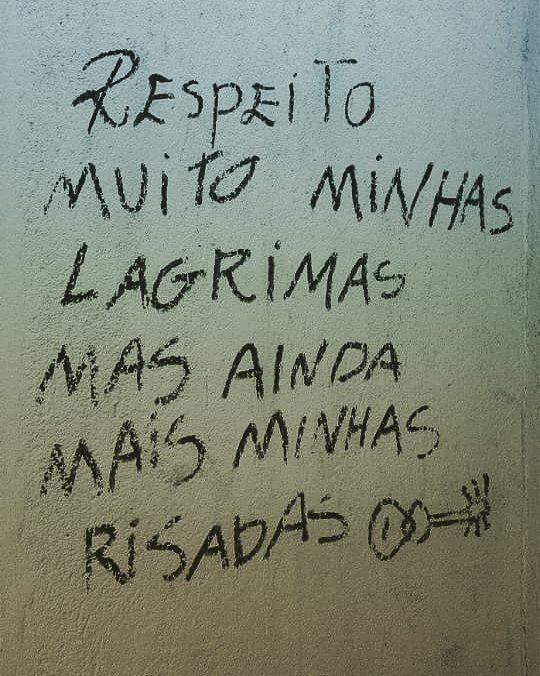 RESPEiTO
MUiTO MiNHAS
LAGRiMAS
MAS AINDA
MAiS MINHAS
RiSADAS